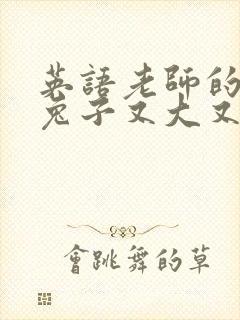 英語老師的
兔子又大又
會跳舞的草